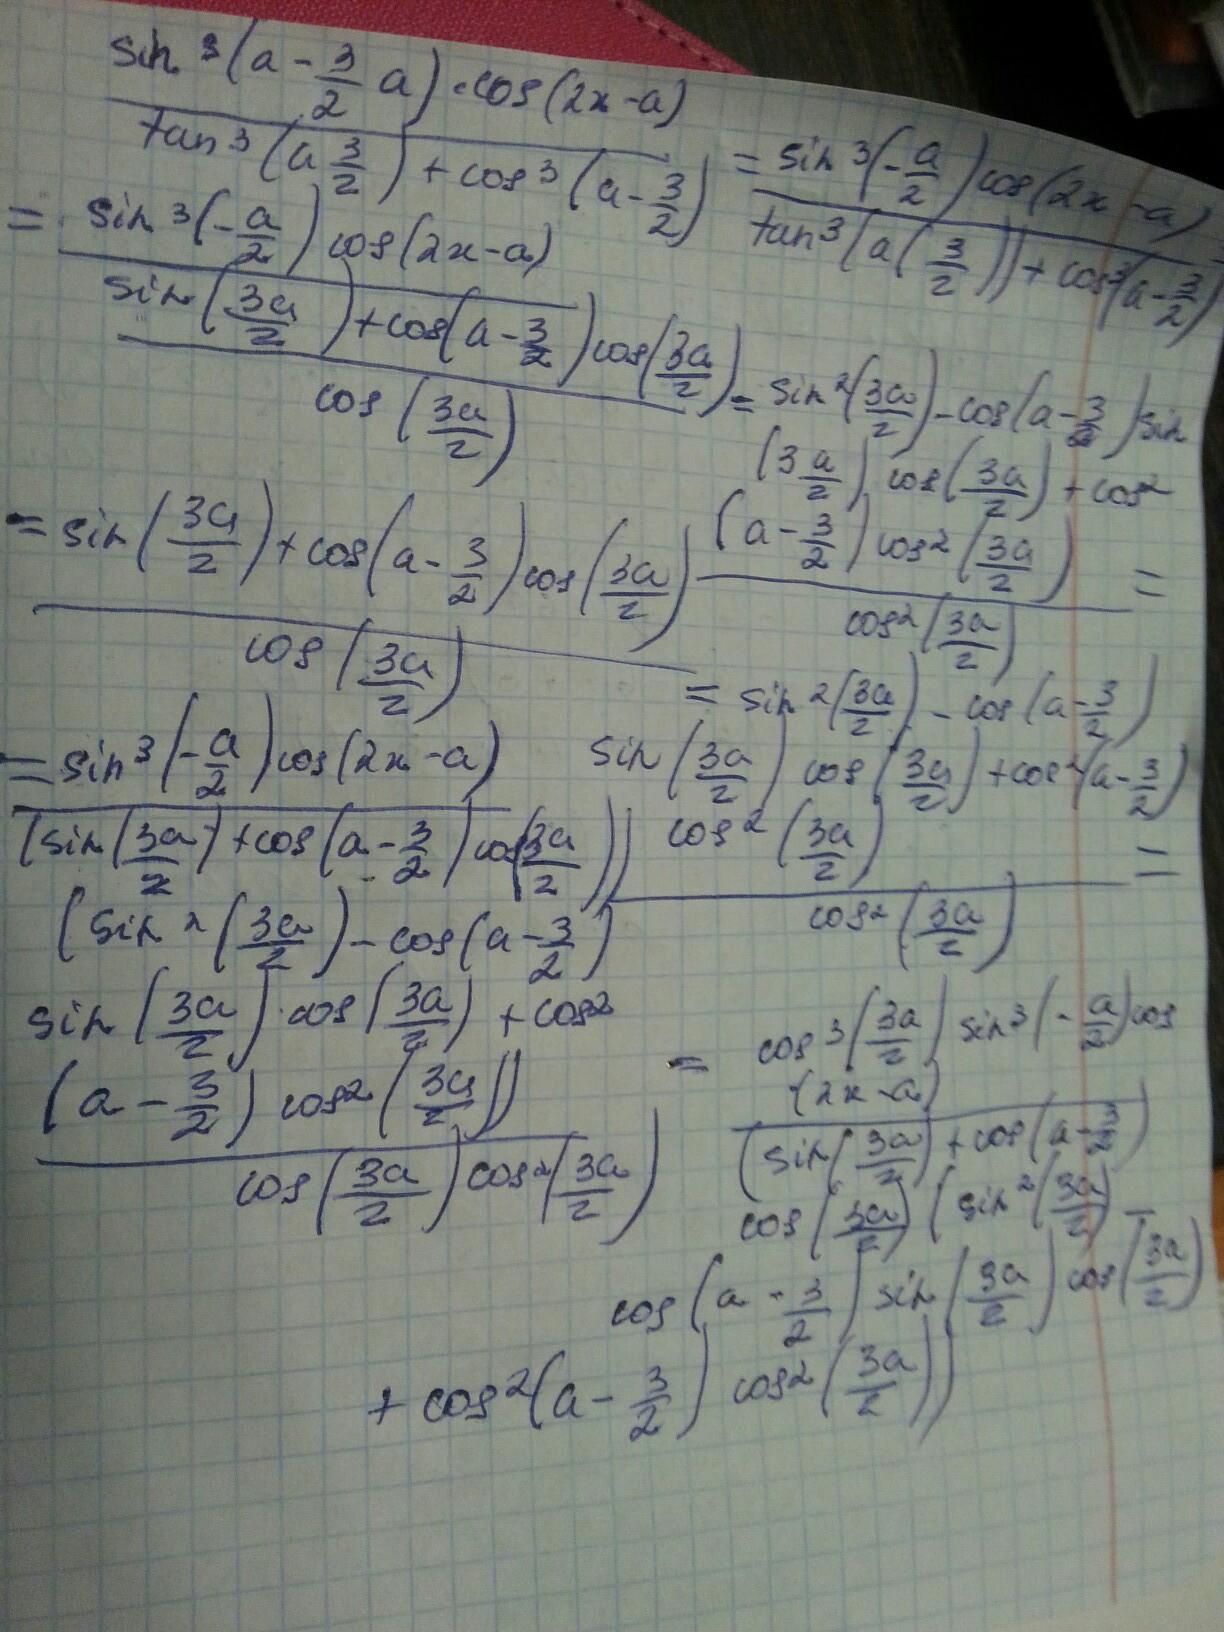 sin³(a - 3/2 a) · cos(2x - a)
tan³(a 3/2) + cos³(a - 3/2)
= sin³(-a/2) cos(2x - a)
tan³(a(3/2)) + cos³(a - 3/2)
= sin³(-a/2) cos(2x - a)
sin(3a/2) + cos(a - 3/2) cos(3a/2)
cos(3a/2)
= sin²(3a/2) - cos(a - 3/2) sin
(3a/2) cos(3a/2) + cos²
(a - 3/2) cos²(3a/2) =
cos²(3a/2)
= sin(3a/2) + cos(a - 3/2) cos(3a/2)
cos(3a/2)
= sin²(3a/2) - cos(a - 3/2)
sin(3a/2) cos(3a/2) + cos²(a - 3/2)
cos²(3a/2) =
cos²(3a/2)
= sin³(-a/2) cos(2x - a)
(sin(3a/2) + cos(a - 3/2) cos(3a/2))
(sin²(3a/2) - cos(a - 3/2)
sin(3a/2) · cos(3a/2) + cos²
(a - 3/2) cos²(3a/2))
cos(3a/2) cos²(3a/2)
= cos³(3a/2) sin³(-a/2) cos
(2x - a)
(sin(3a/2) + cos(a - 3/2)
cos(3a/2) (sin²(3a/2) -
cos(a - 3/2) sin(3a/2) cos(3a/2)
+ cos²(a - 3/2) cos²(3a/2))